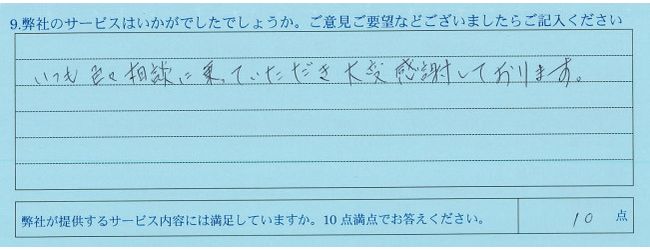 9.弊社のサービスはいかがでしたでしょうか。ご意見ご要望などございましたらご記入ください
いつも色々相談に乗っていただき大変感謝しております。
弊社が提供するサービス内容には満足していますか。10点満点でお答えください。 10 点